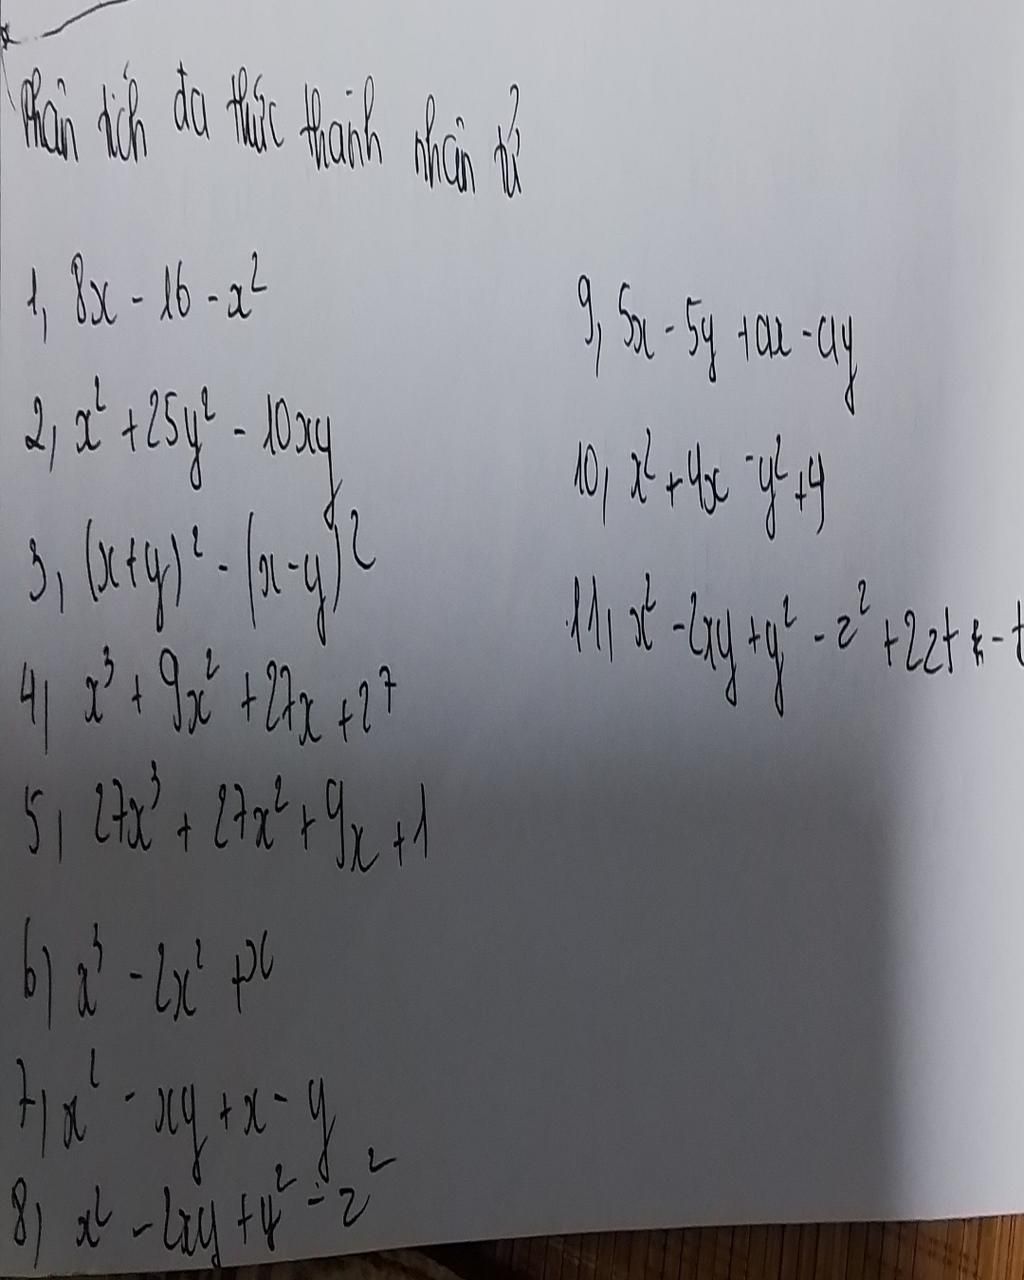 Phân tích đa thức thành nhân tử
1, 8x - 16 - x²
2, x² + 25y² - 10xy
3, (x+y)² - (x-y)²
4, x³ + 9x² + 27x + 27
5, 27x³ + 27x² + 9x + 1
6) x³ - 2x² + x
7) x² - xy + x - y
8) x² - 2xy + y² - z²
9, 5x - 5y + ax - ay
10, x² + 4x - y² + 4
11, x² - 2xy + y² - z² + 2zt - t